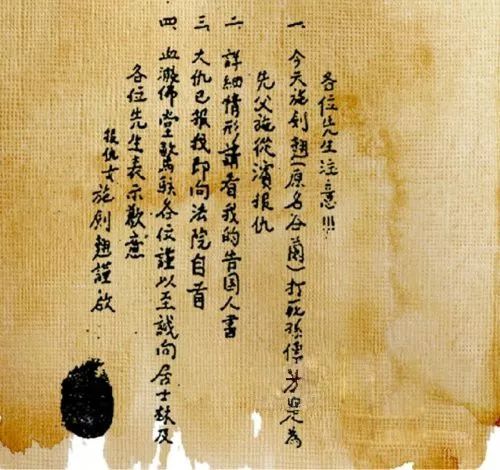 各位先生注意!!!
一 今天施劍翹(原名谷蘭)打死孫傳芳是為
先父施從濱報仇
二 詳細情形請看我的告国人書
三 大仇已報我即向法院自首
四 血濺佛堂驚駭各位謹以至誠向居士林及
各位先生表示歉意
報仇女 施劍翹謹啟